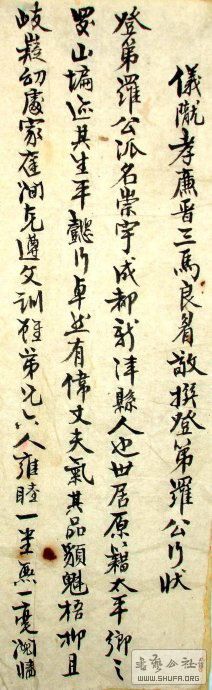 儀隴孝廉晋三馬良者敬撰登第羅公行状
登第羅公派名崇宇成都新津縣人也世居原籍太平鄉之
羅山塥迹其生平懿行卓然有偉丈夫氣其品類魁梧抑且
岐嶷幼處家庭間克遵父訓雖弟兄六人雍睦一堂無一毫鬩牆
書藝公社
WWW.SHUFA.ORG